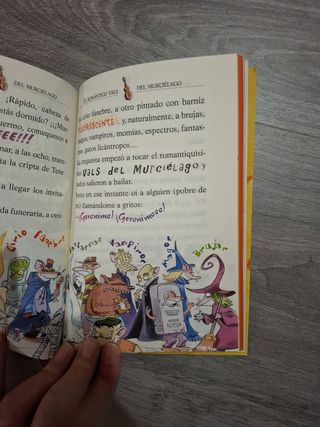 DEL MURCIÉLAGO
¡Rápido, cabeza de
estás dormido? ¡¡¡Mue-
uermo, comequesos a
EEE!!!
a, a las ocho, tran-
la cripta de Tene-
a llegar los invita-
da funeraria, a otro
Cirio fúnebre
EL ROMÁNTICO VALS DEL MURCIÉLAGO
cirio fúnebre, a otro pintado con barniz
FLUORESCENTE... y, naturalmente, a brujas,
magos, vampiros, momias, espectros, fantas-
gatos licántropos...
orquesta empezó a tocar el romantiquísi-
VALS DEL MURCIÉLAGO y
salieron a bailar.
en ese instante oí a alguien (pobre de
mí) llamándome a gritos:
—¡Geronimo! ¡Geronimooo!
Vampiros
Brujas